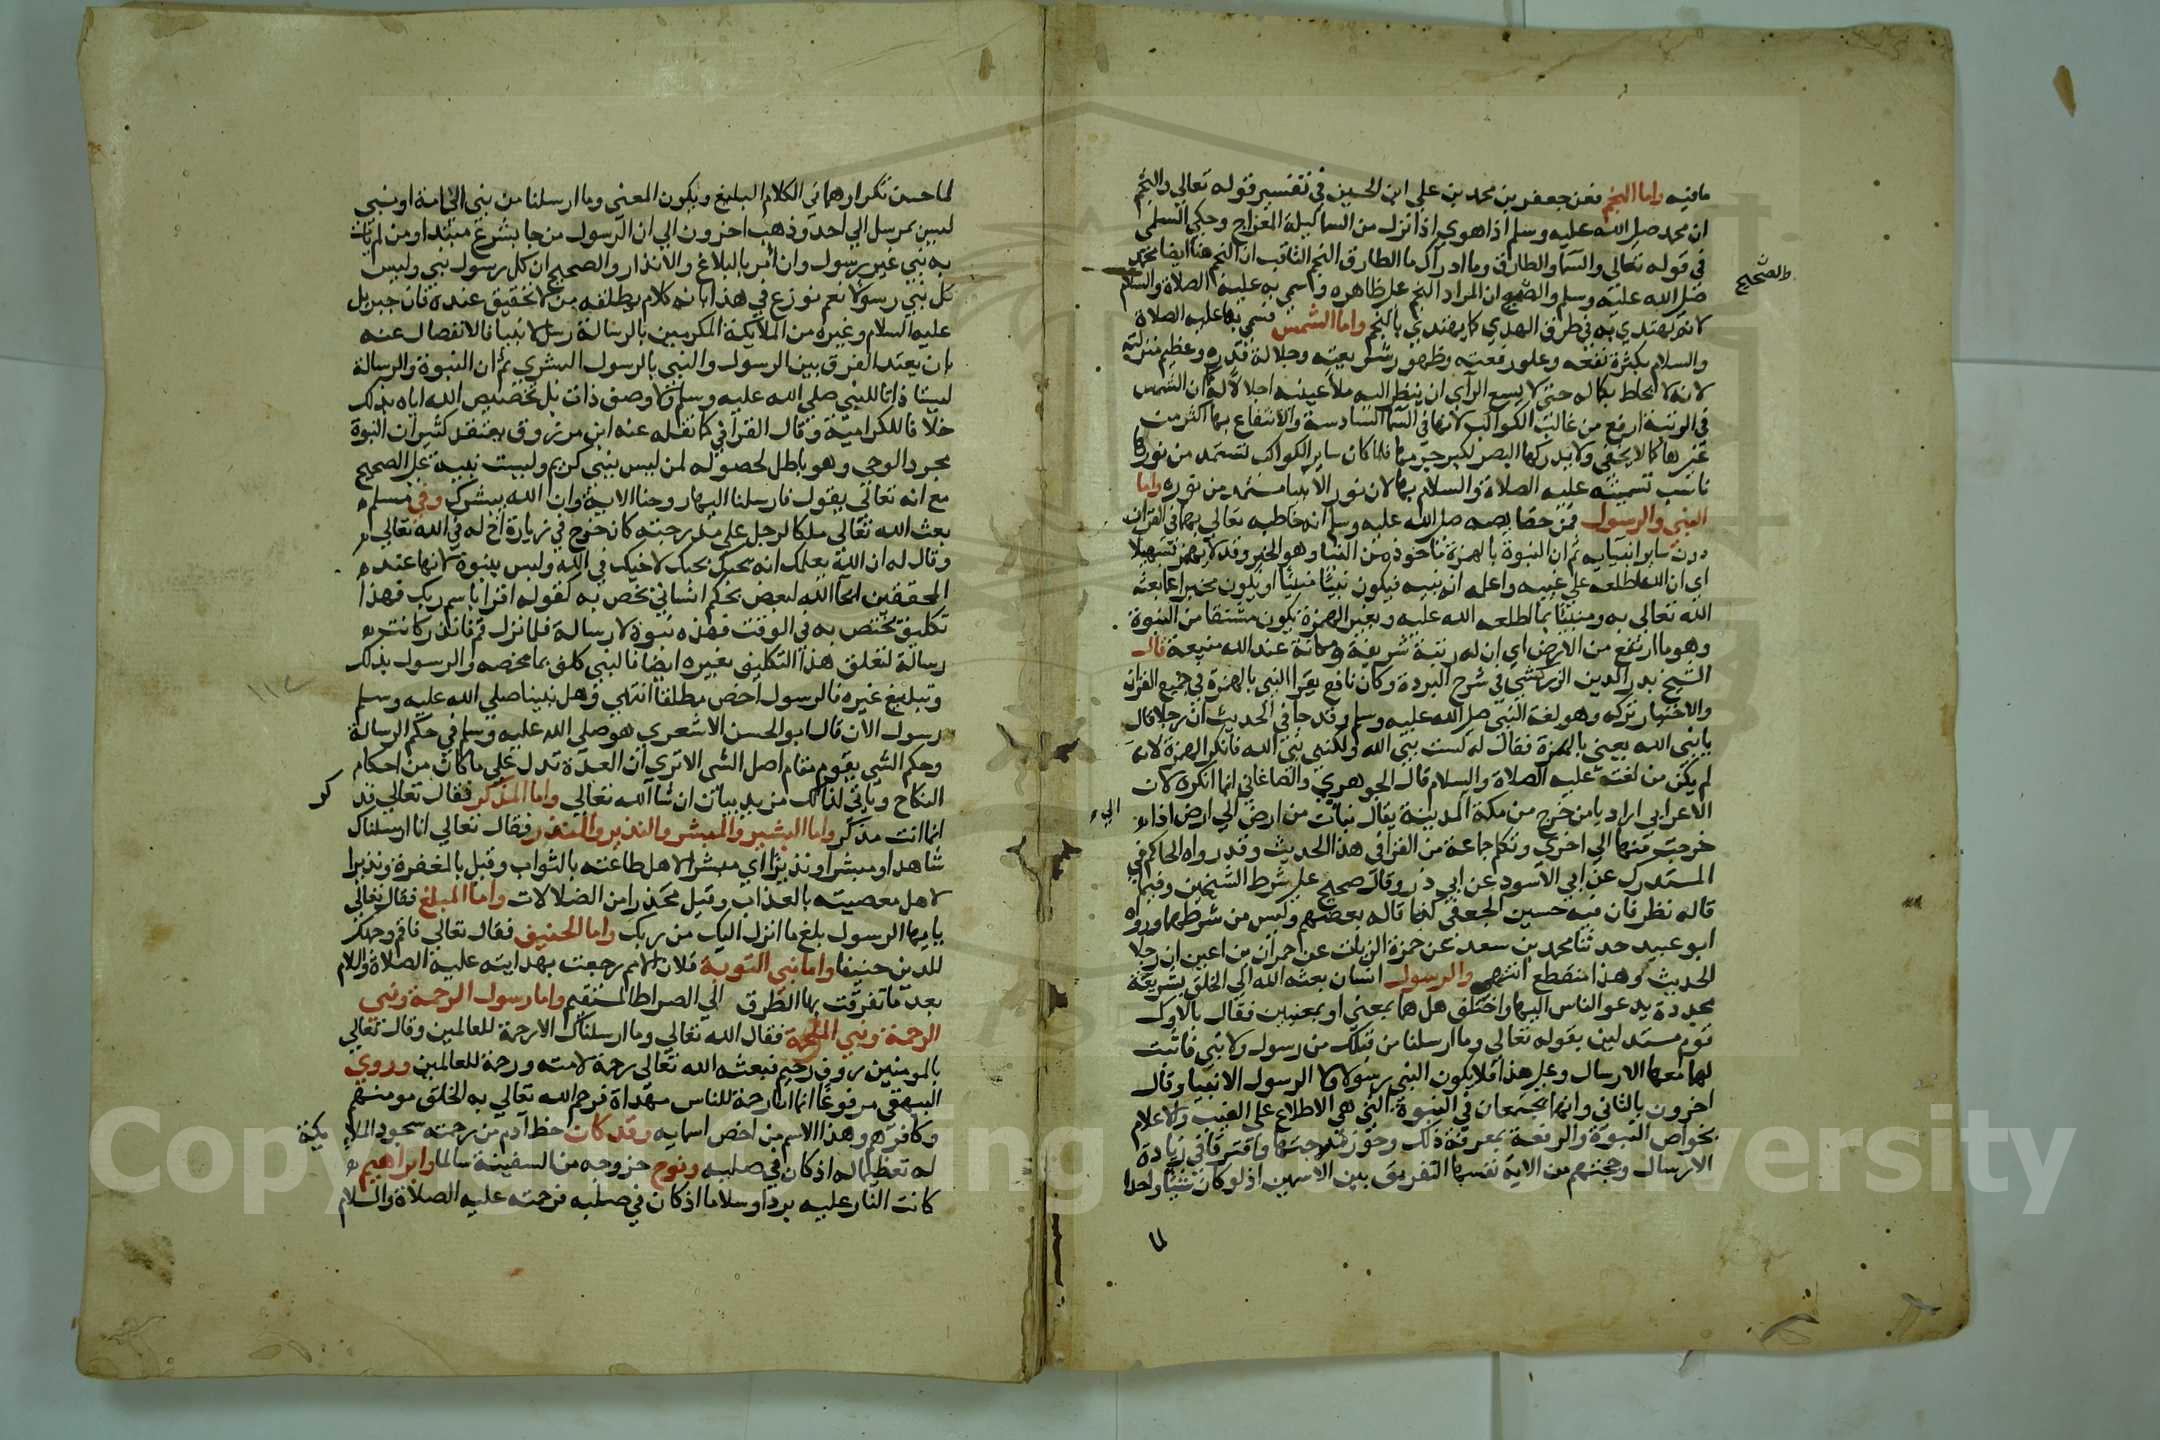 مافيه واما النجم فعن جعفر بن محمد بن علي ابن الحسين في تفسير قوله تعالي والنجم
ان محمد صلى الله عليه وسلم اذا هوي اذا نزل من السما ليلة المعراج وحكي السلمي
في قوله تعالي والسما والطارق وما ادراك ما الطارق النجم الثاقب ان النجم هنا ايضا محمد
صلى الله عليه وسلم والصحيح ان المراد النجم على ظاهره وسمي به عليه الصلاة والسلام
والصحيح
لانه يهتدي به في طرق الهدي كما يهتدي بالنجم واما الشمس فسمي بها عليه الصلاة
والسلام لكثرة نفعه وعلو رفعته وظهور شريعته وجلالة قدره وعظيم منزلته
لانه لا يحاط بكماله حتى لا يسع الرأي ان ينظر اليه ملأ عينيه اجلالا له كما ان الشمس
في الرتبة ارفع من غالب الكواكب لانها في السما السادسة والانتفاع بها اكثر من
غيرها كما لا يخفي ولا يدركها البصر لكبر جرمها فلما كان ساير الكواكب تستمد من نورها
ناسب تسميته عليه الصلاة والسلام بها لان نور الانبيا مستمد من نوره واما
النبي والرسول فمن خصايصه صلى الله عليه وسلم انه خاطبه تعالي بهما في القران
دون ساير انبيايه ثم ان النبوة بالهمزة ماخوذة من النبا وهو الخبر وقد لا يهمز تسهيلا
اي ان الله اطلعه علي غيبه واعلمه انه نبيه فيكون نبيا منبئا او يكون مخبرا عما بعثه
الله تعالي به ومنبئا بما اطلعه الله عليه وبغير الهمزة يكون مشتقا من النبوة
وهو ما ارتفع من الارض اي ان له رتبة شريفة ومكانة عند الله منيعة قال
الشيخ بدر الدين الزركشي في شرح البردة وكان نافع يقرا النبي بالهمزة في جميع القران
والاختيار تركه وهو لغة النبي صلى الله عليه وسلم وقد جا في الحديث ان رجلا قال
يا نبي الله يعني بالهمزة فقال له لست بنبئ الله ولكنني نبي الله فانكر الهمزة لانه
لم يكن من لغته عليه الصلاة والسلام قال الجوهري والصاغاني انما انكره لان
الاعرابي اراد يا من خرج من مكة الى المدينة يقال نبات من ارض الي ارض اذا
خرجت منها الي اخري وتكلم جماعة من القرا في هذا الحديث وقد رواه الحاكم في
المستدرك عن ابي الاسود عن ابي ذر وقال صحيح على شرط الشيخين وفيما
قاله نظر فان فيه حسين الجعفي كما قاله بعضهم وليس من شرطهما ورواه
ابو عبيد حدثنا محمد بن سعد عن حمزة الزيات عن حمران بن اعين ان رجلا
الحديث وهذا منقطع انتهي والرسول انسان بعثه الله الي الخلق بشريعة
مجددة يدعو الناس اليها واختلف هل هما بمعني او بمعنيين فقال بالاول
قوم مستدلين بقوله تعالي وما ارسلنا من قبلك من رسول ولا نبي فاثبت
لهما معا الارسال وعلى هذا فلا يكون النبي رسولا ولا الرسول الا نبيا وقال
اخرون بالثاني وانهما يجتمعان في النبوة التي هي الاطلاع على الغيب والاعلام
بخواص النبوة والرفعة بمعرفة ذلك وحوز درجتها وافترقا في زيادة
الارسال وحجتهم من الاية نفسها التفريق بين الاسمين اذ لو كان شيئا واحدا
لما
لما حسن تكرارهما في الكلام البليغ ويكون المعنى وما ارسلنا من نبي الي امة او نبي
ليس بمرسل الي احد وذهب اخرون الي ان الرسول من جا بشرع مبتدا ومن لم يات
به نبي غير رسول وان امر بالبلاغ والانذار والصحيح ان كل رسول نبي وليس
كل نبي رسولا نعم نوزع في هذا بانه كلام يطلقه من لا تحقيق عنده فان جبريل
عليه السلام وغيره من الملايكة المكرمين بالرسالة رسل لا انبيا فالانفصال عنه
بان يعتد الفرق بين الرسول والنبي بالرسول البشري ثم ان النبوة والرسالة
ليستا ذاتا للنبي صلي الله عليه وسلم ولا وصف ذات بل تخصيص الله اياه بذلك
خلافا للكرامية وقال القرافي كما نقله عنه ابن مرزوق يعتقد كثير ان النبوة
مجرد الوحي وهو باطل لحصوله لمن ليس بنبي كمريم وليست نبية على الصحيح
مع انه تعالى يقول فارسلنا اليها روحنا الاية وان الله يبشرك وفي مسلم
بعث الله تعالي ملكا لرجل علي مدرجته كان خرج في زيارة اخ له في الله تعالي
وقال له ان الله يعلمك انه يحبك بحبك لاخيك في الله وليس بنبوة لانها عند
المحققين ايحا الله لبعض بحكم انشائي يختص به كقوله اقرا باسم ربك فهذا
تكليف يختص به في الوقت فهذه نبوة لا رسالة فلما نزل قم فانذر كانت
رسالة لتعلق هذا التكليف بغيره ايضا فالنبي كلف بما يخصه والرسول بذلك
وتبليغ غيره فالرسول اخص مطلقا انتهي وهل نبينا صلي الله عليه وسلم
رسول الان قال ابو الحسن الاشعري هو صلي الله عليه وسلم في حكم الرسالة
وحكم الشي يقوم مقام اصل الشي الا تري ان العدة تدل علي ما كان من احكام
النكاح وياتي لذلك مزيد بيان ان شا الله تعالي واما المذكر فقال تعالي فذكر
انما انت مذكر واما البشير والمبشر والنذير والمنذر فقال تعالي انا ارسلناك
شاهدا ومبشرا ونذيرا اي مبشرا لاهل طاعته بالثواب وقيل بالمغفرة ونذيرا
لاهل معصيته بالعذاب وقيل محذرا من الضلالات واما المبلغ فقال تعالي
يا ايها الرسول بلغ ما انزل اليك من ربك واما الحنيف فقال تعالي فاقم وجهك
للدين حنيفا واما نبي التوبة فلان الامم رجعت بهدايته عليه الصلاة والسلام
بعد ما تفرقت بها الطرق الي الصراط المستقيم واما رسول الرحمة ونبي
الرحمة ونبي الملحمة فقال الله تعالي وما ارسلناك الا رحمة للعالمين وقال تعالي
بالمومنين روف رحيم فبعثه الله تعالي رحمة لامته ورحمة للعالمين وروي
البيهقي مرفوعا انما انا رحمة للناس مهداة فرحم الله تعالي به الخلق مومنهم
وكافرهم وهذا الاسم من اخص اسمايه وقد كان حظ ادم من رحمته سجود الملايكة
له تعظيما له اذ كان في صلبه ونوح خروجه من السفينة سالما وابراهيم
كانت النار عليه بردا وسلاما اذ كان في صلبه فرحمته عليه الصلاة والسلام
Copyright © King Saud University